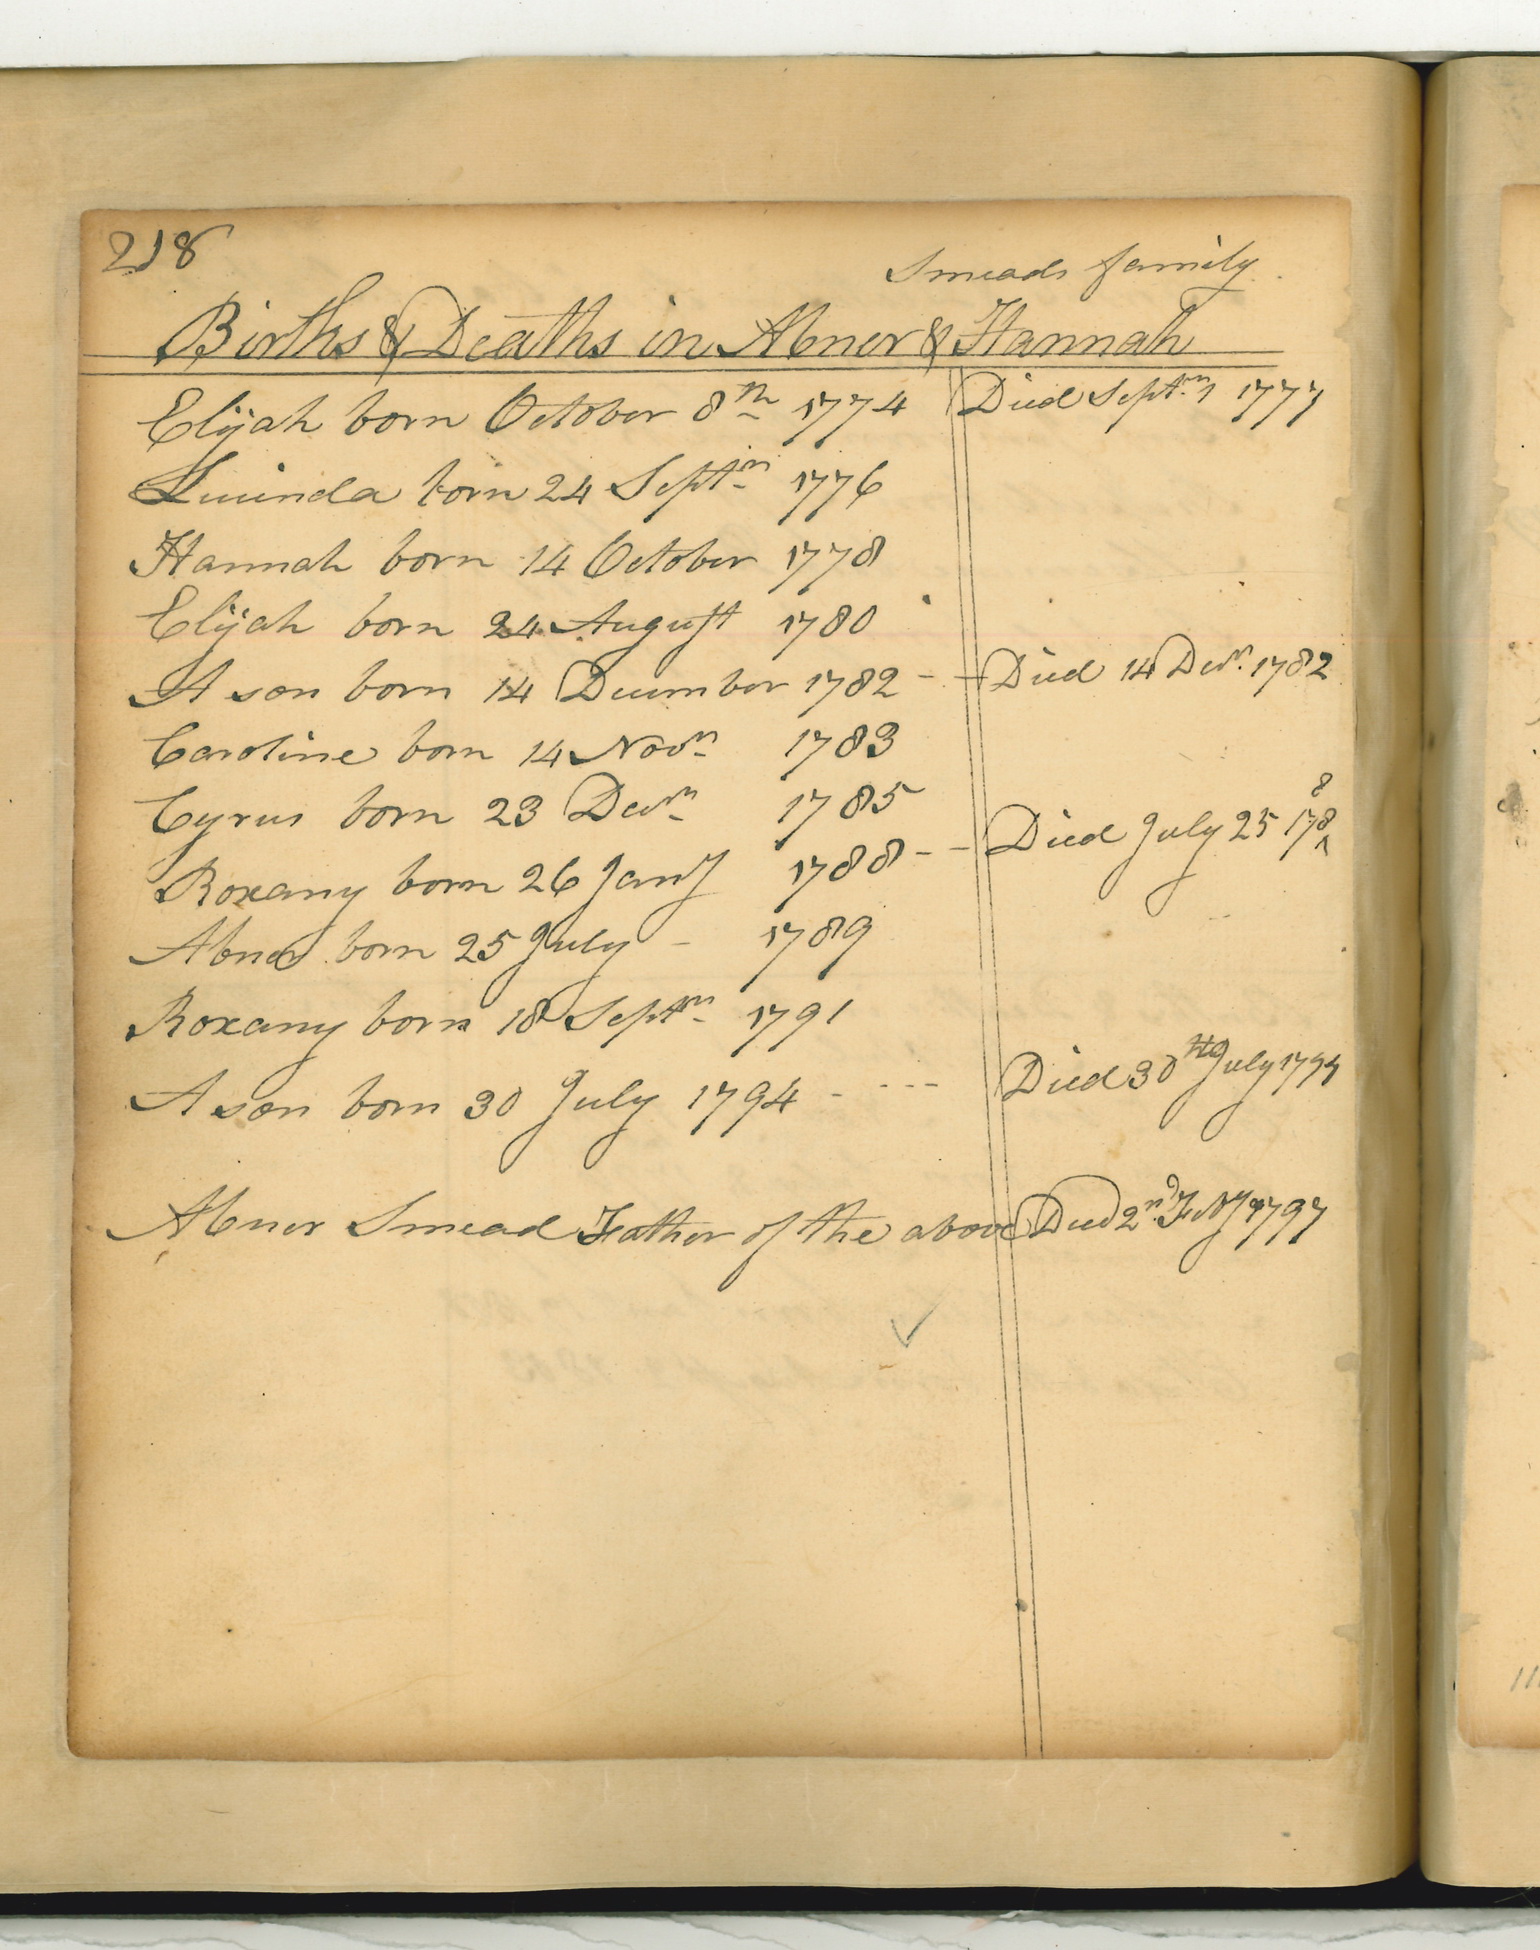 218
Smeads family
Births & Deaths in Abner & Hannah
Elijah born October 8th 1774 Died Septm 1777
Lucinda born 24 Septm 1776
Hannah born 14 October 1778
Elijah born 24 August 1780
A son born 14 December 1782 - - Died 14 Decm. 1782
Caroline born 14 Novm 1783
Cyrus born 23 Decm 1785
Roxany born 26 Jany 1788 - - Died July 25 1788
Abner born 25 July - 1789
Roxany born 18 Septm 1791
A son born 30 July 1794 - - - - Died 30th July 1794
Abner Smead Father of the above Died 2nd Feby 1797